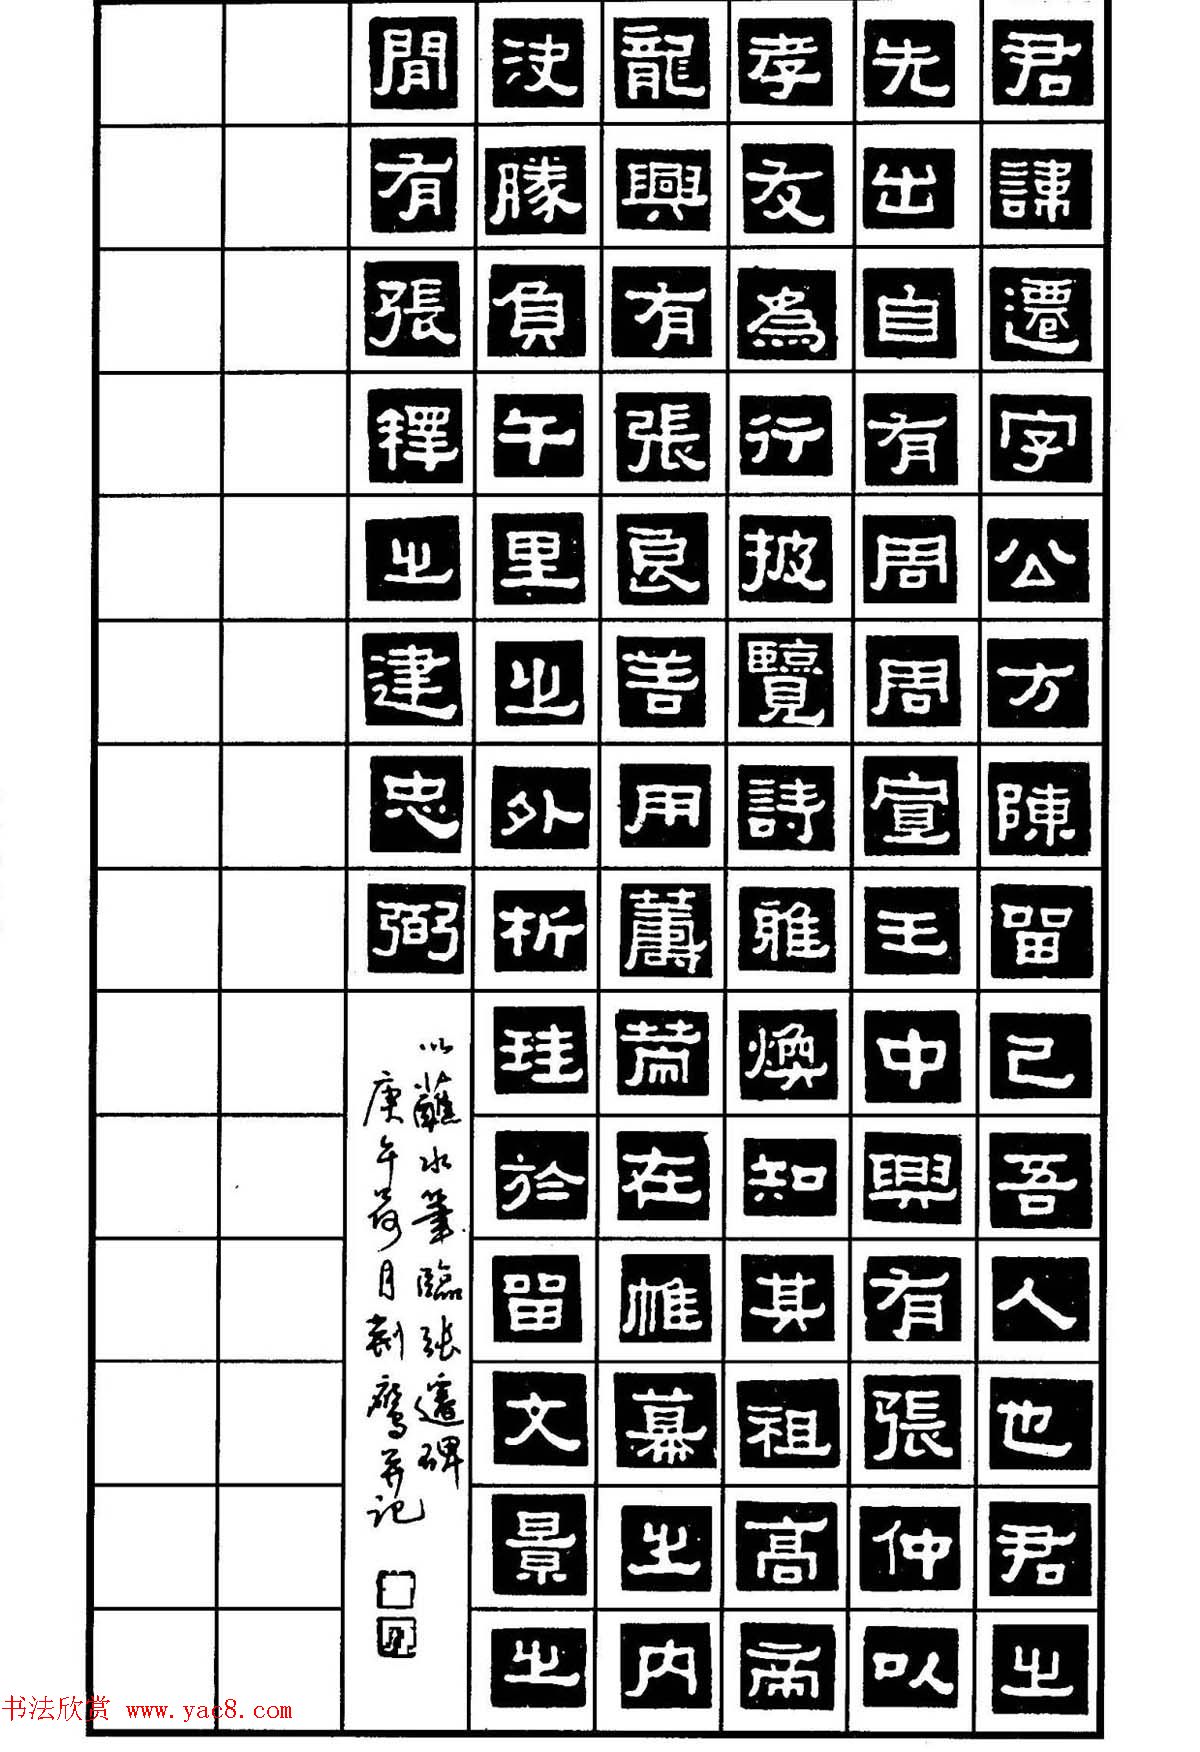 君諱遷字公方陳留己吾人也君之
先出自有周周宣王中興有張仲以
孝友為行披覽詩雅煥知其祖高帝
龍興有張良善用籌策在帷幕之內
決勝負千里之外析珪於留文景之
間有張釋之建忠弼
以蘸水筆臨張遷碑
庚午荷月 鷹并记
书法欣赏 www.yac8.com